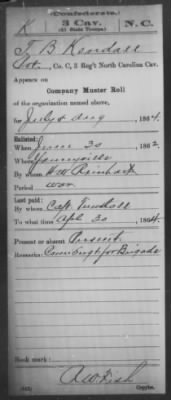 (Confederate.)
K 3 Cav. N.C.
(41 State Troops.)
T. B. Kendall
Pvt., Co. C, 3 Reg't North Carolina Cav.
Appears on
Company Muster Roll
of the organization named above,
for July & Aug, 1864
Enlisted:
When June 30, 1862
Where
By whom H. W. Reinhart
Period war
Last paid:
By whom Capt.
To what time Apl 30, 1864.
Present or absent Present
Remarks: for Brigade
Book mark:
Copyist.